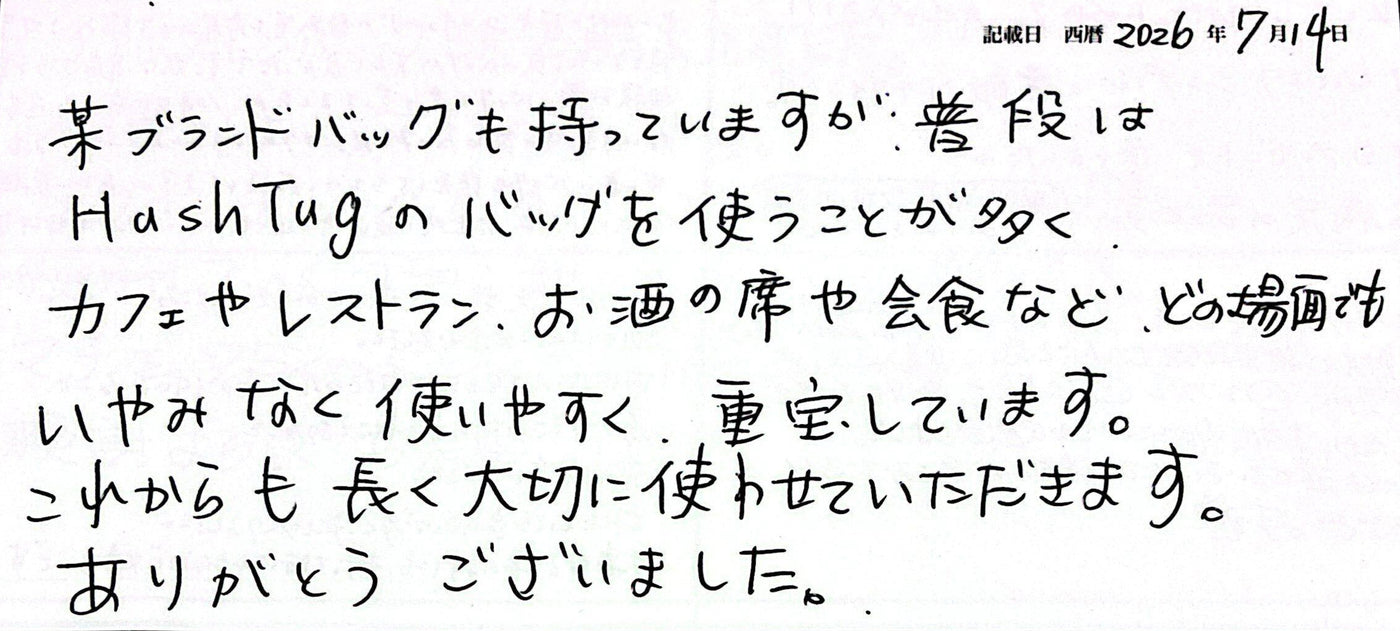 記載日 西暦 2026年7月14日
某ブランドバッグも持っていますが、普段は
HashTugのバッグを使うことが多く、
カフェやレストラン、お酒の席や会食など、どの場面でも
いやみなく使いやすく、重宝しています。
これからも長く大切に使わせていただきます。
ありがとうございました。